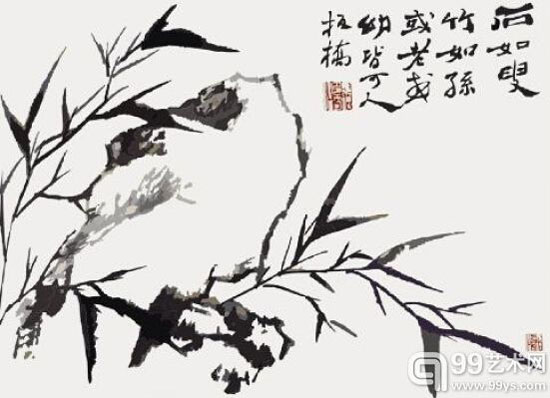 石如叟
竹如孫
或老或
幼皆可人
板橋
99艺术网
www.99ys.com